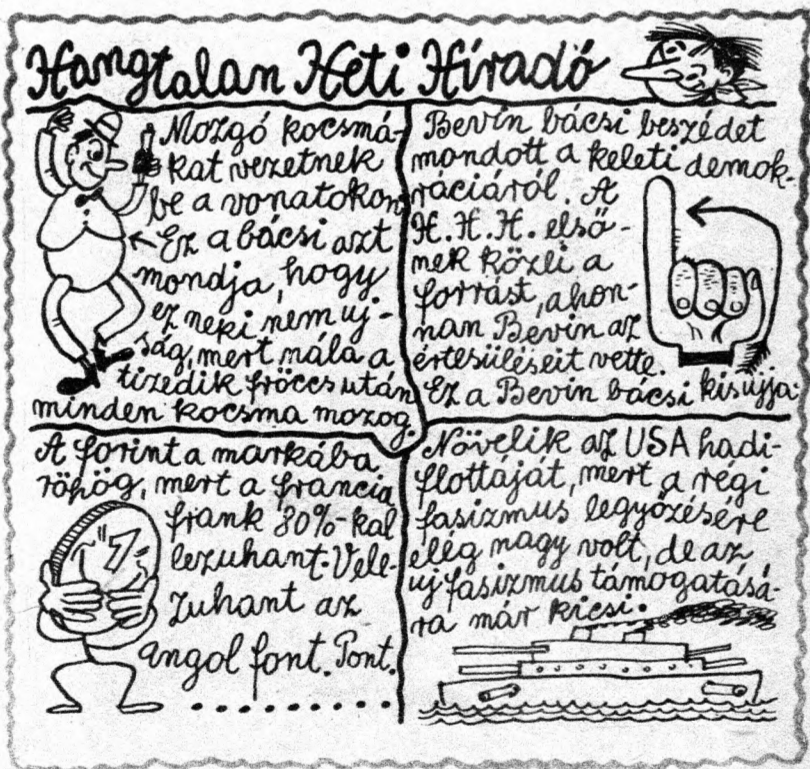 Hangtalan Heti Híradó
Mozgó kocsmá-
kat vezetnek
be a vonatokon
Ez a bácsi azt
mondja, hogy
ez neki nem uj-
ság, mert nála a
tizedik fröccs után
minden kocsma mozog.
Bevin bácsi beszédet
mondott a keleti demok-
ráciáról. A
H.H.H. első-
nek közli a
forrást, ahon-
nan Bevin az
értesüléseit vette.
Ez a Bevin bácsi kisujja.
A forint a markába
röhög, mert a francia
frank 80%-kal
lezuhant. Vele-
zuhant az
angol font. Pont.
. . . . . . . . . .
Növelik az USA hadi-
flottáját, mert a régi
fasizmus legyőzésére
elég nagy volt, de az
uj fasizmus támogatásá-
ra már kicsi.